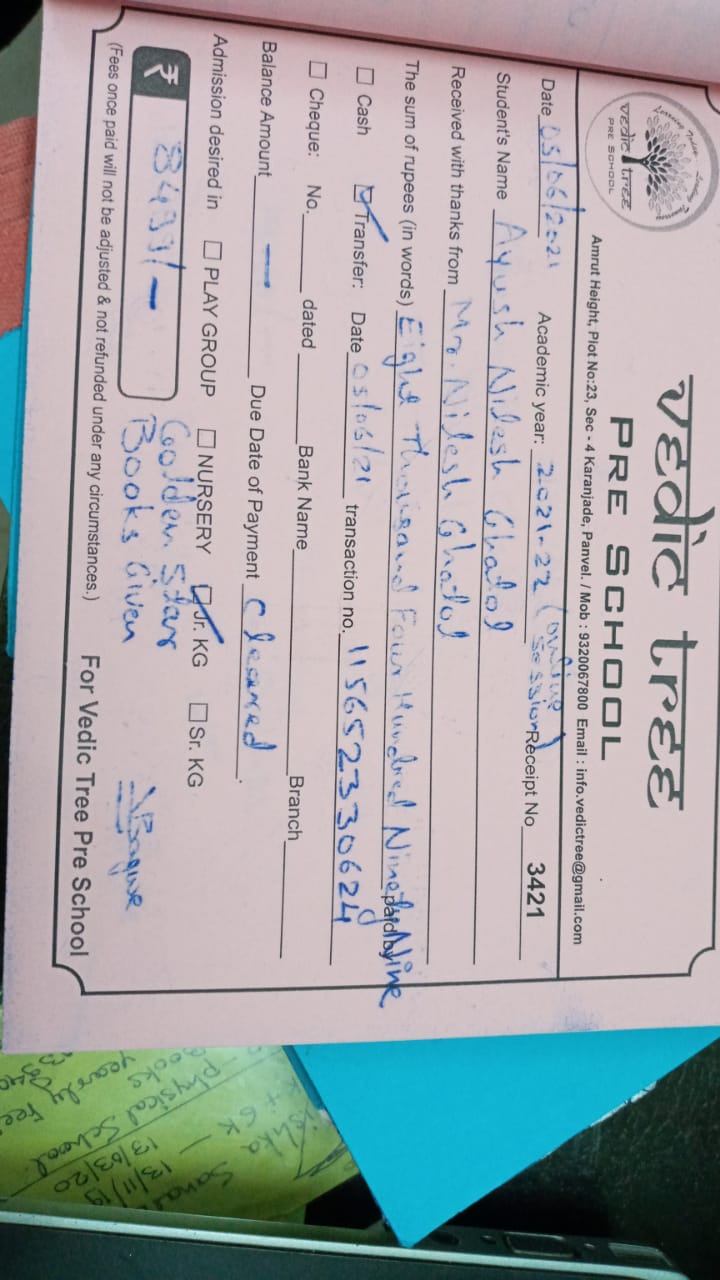 vedic tree
PRE SCHOOL
vedic tree
PRE SCHOOL
Amrut Height, Plot No:23, Sec - 4 Karanjade, Panvel. / Mob : 9320067800 Email : info.vedictree@gmail.com
Date 05/06/2021 Academic year: 2021-22 (online session) Receipt No 3421
Student's Name Ayush Nilesh Gharat
Received with thanks from Mr. Nilesh Gharat
The sum of rupees (in words) Eight Thousand Four Hundred Ninety Nine paid by
Cash Transfer: Date 05/06/21 transaction no. 115652330624
Cheque: No. dated Bank Name Branch
Balance Amount — Due Date of Payment Cleared.
Admission desired in PLAY GROUP NURSERY Jr. KG Sr. KG
₹ 8499/- Golden Star
Books Given
(Fees once paid will not be adjusted & not refunded under any circumstances.) For Vedic Tree Pre School
13/11/19
13/03/20
+ GK
physical School
Books yearly Fee